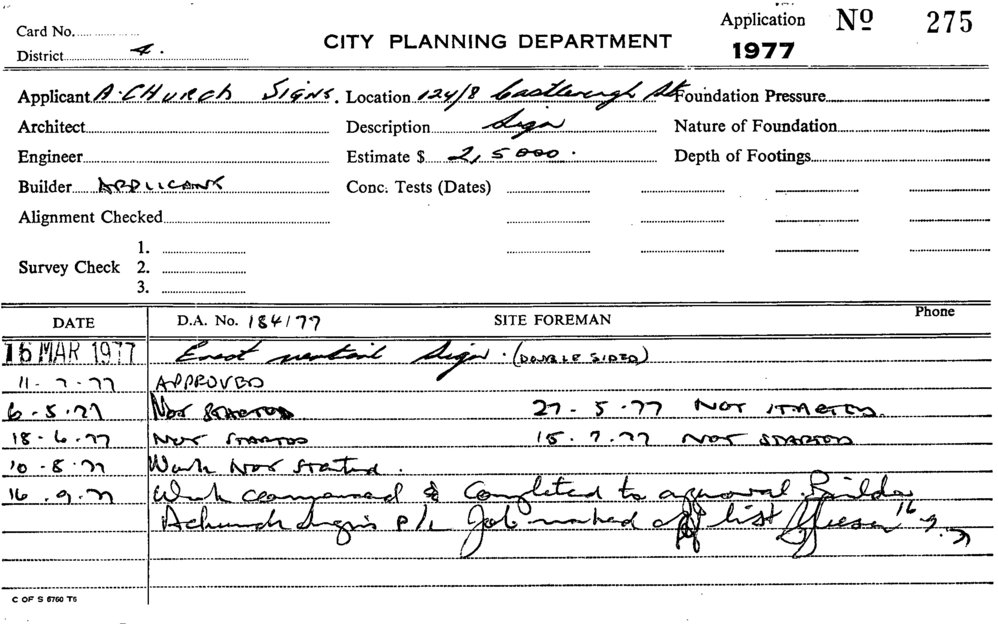 Card No. Application Nº 275
District 4. CITY PLANNING DEPARTMENT 1977
Applicant A. CHURCH SIGNS. Location 124/8 Castlereagh St. Foundation Pressure
Architect Description Sign Nature of Foundation
Engineer Estimate $ 2,5000. Depth of Footings
Builder APPLICANT Conc. Tests (Dates)
Alignment Checked
1.
Survey Check 2.
3.
DATE D.A. No. 184/77 SITE FOREMAN Phone
16 MAR 1977 Erect Sign. (DOUBLE SIDED)
11-7-77 APPROVED
6-5-77 NOT STARTED 27-5-77 NOT STARTED.
18-6-77 NOT STARTED 15.7.77 NOT STARTED
10-8-77 Work Not started.
16.9.77 Work commenced & Completed to approval. Builder
Achurch Signs P/L Job marked off list 16.9.77
C OF S 6760 T6